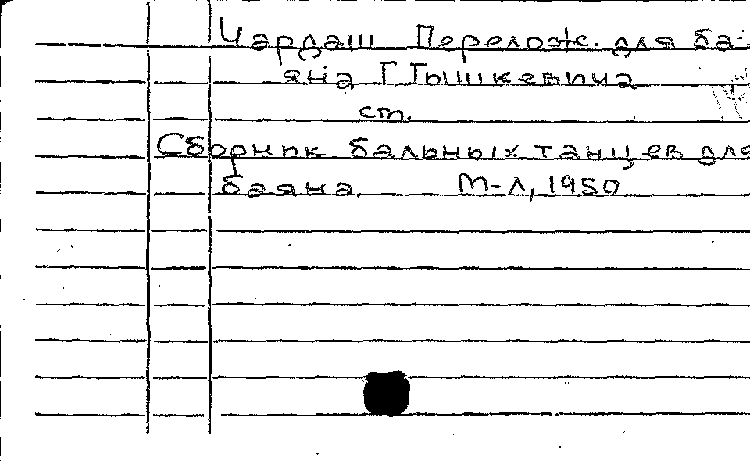 Чардаш Перелож. для ба-
яна Г. Тышкевича
ст.
Сборник бальных танцев для
баяна М-Л, 1950